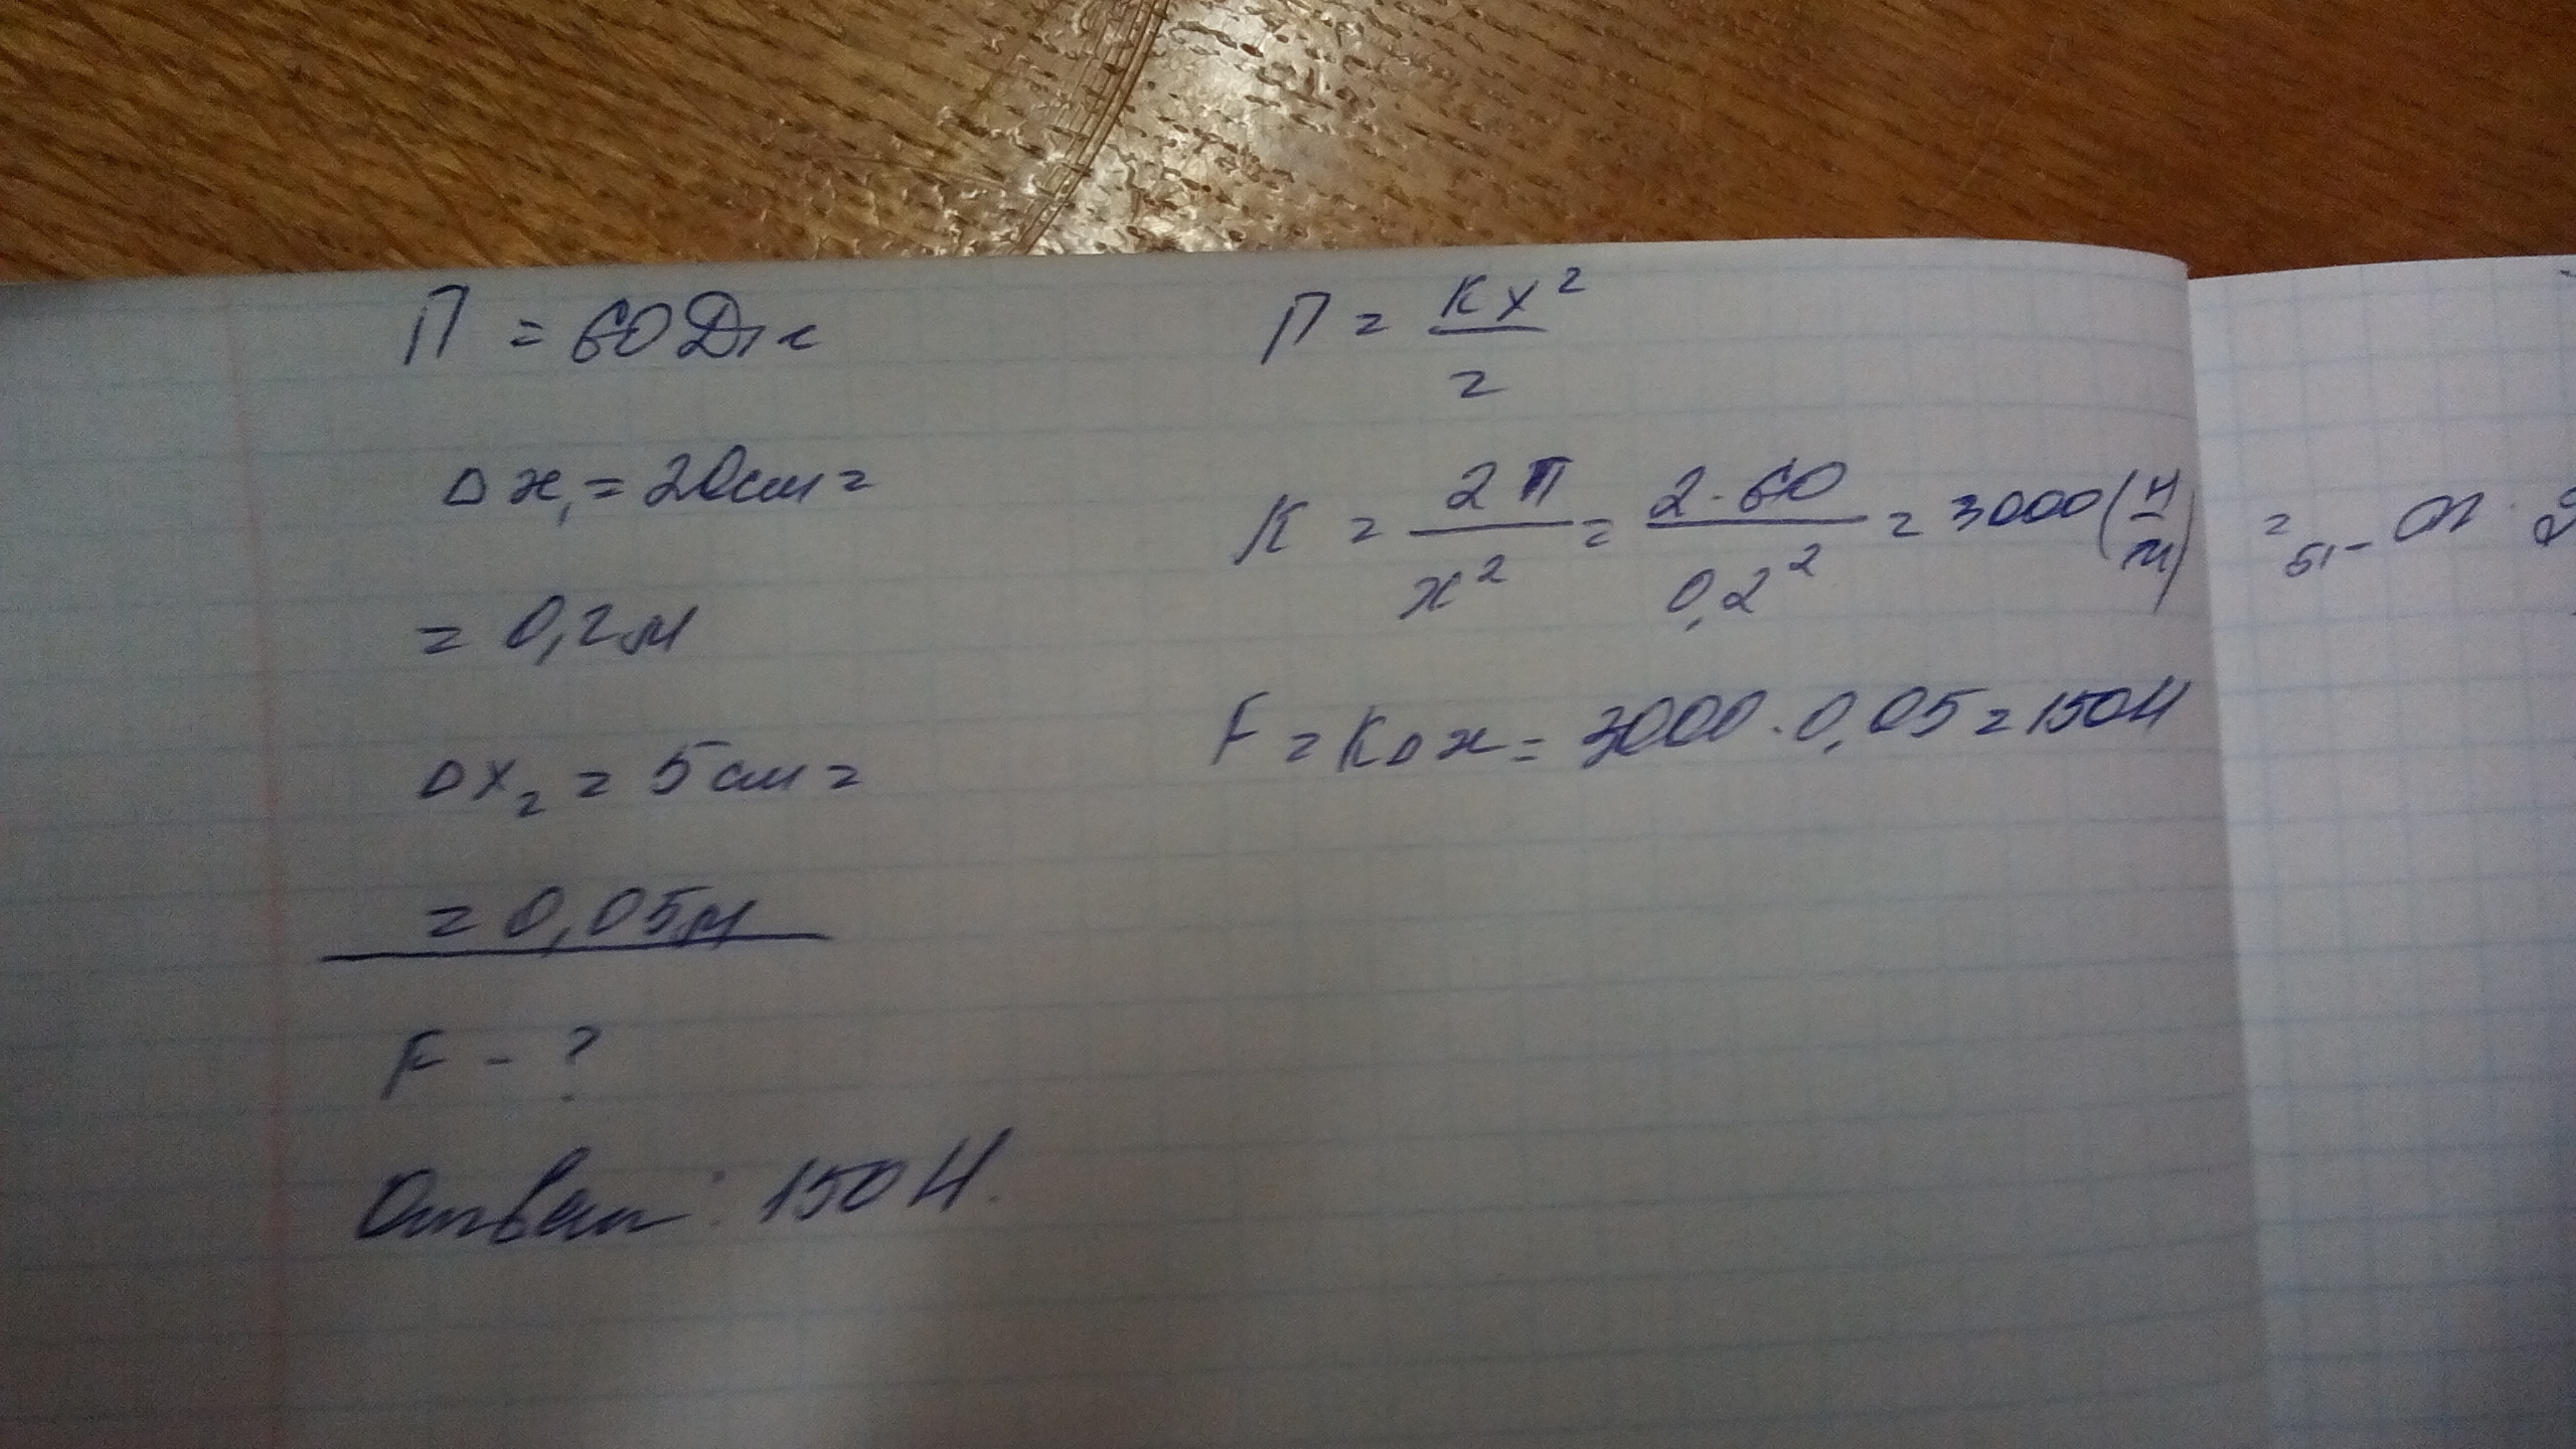 П = 60 Дж
Δx₁ = 20 см =
= 0,2 м
Δx₂ = 5 см =
= 0,05 м
F - ?
Ответ: 150 Н.
П = Kx²/2
K = 2П/x² = 2·60/0,2² = 3000 (Н/м)
F = KΔx = 3000·0,05 = 150 Н